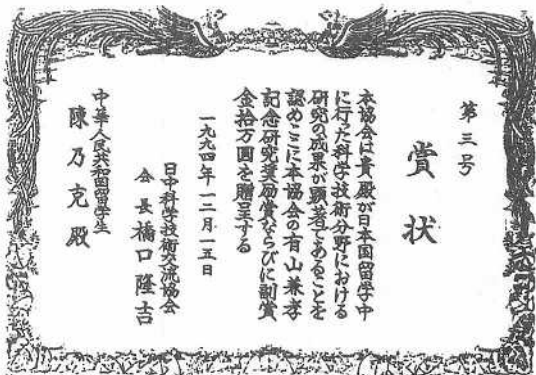 第三号
賞状
本協会は貴殿が日本国留学中
に行った科学技術分野における
研究の成果が顕著であることを
認めここに本協会の有山兼孝
記念研究奨励賞ならびに副賞
金拾万圓を贈呈する
一九九四年一二月一五日
日中科学技術交流協会
会長 橋口隆吉
中華人民共和国留学生
陳乃克殿